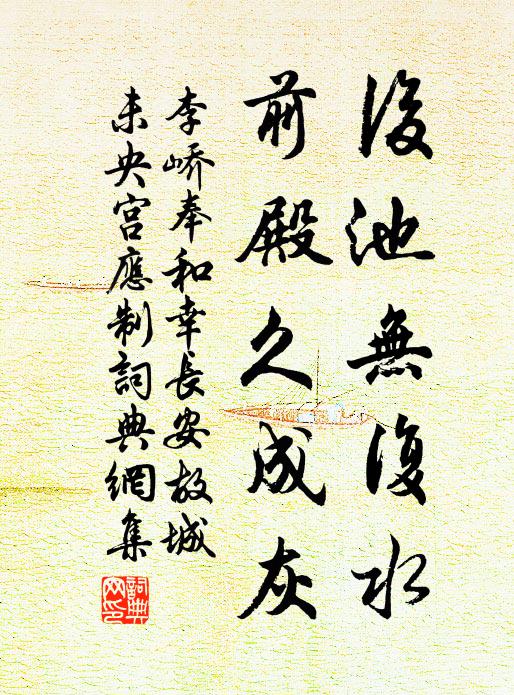 後池無復水
前殿久成灰
李嶠奉和幸長安故城
未央宮應制詞典網集
詞典
網印